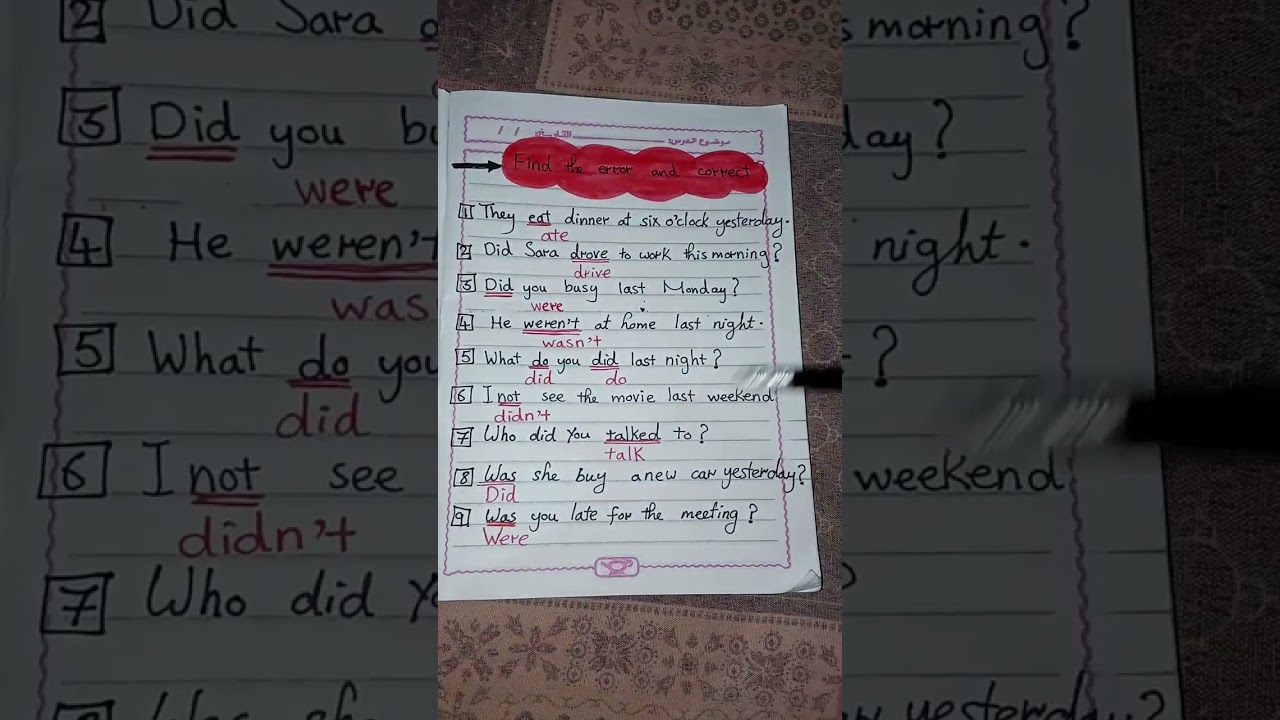 موضوع الدرس: التاريخ: / /
Find the error and correct
1 They eat dinner at six o'clock yesterday.
ate
2 Did Sara drove to work this morning?
drive
3 Did you busy last Monday?
were
4 He weren't at home last night.
wasn't
5 What do you did last night?
did do
6 I not see the movie last weekend
didn't
7 Who did you talked to?
talk
8 Was she buy a new car yesterday?
Did
9 Was you late for the meeting?
Were